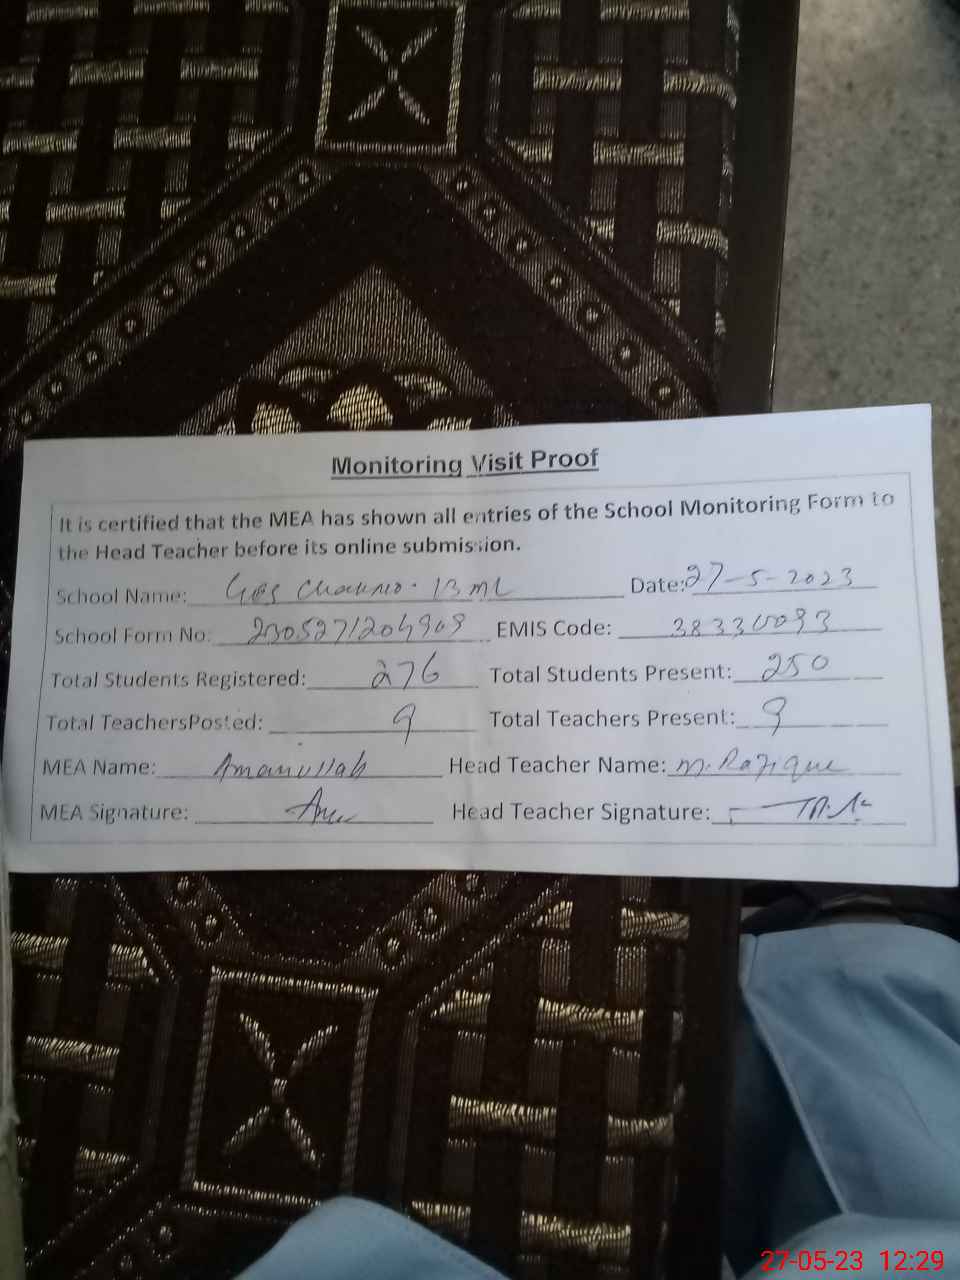 Monitoring Visit Proof
It is certified that the MEA has shown all entries of the School Monitoring Form to
the Head Teacher before its online submission.
School Name: 13 ML Date: 27-5-2023
School Form No: EMIS Code:
Total Students Registered: 276 Total Students Present: 250
Total TeachersPosted: 9 Total Teachers Present: 9
MEA Name: Amanullah Head Teacher Name: M. Rafique
MEA Signature: Head Teacher Signature:
27-05-23 12:29